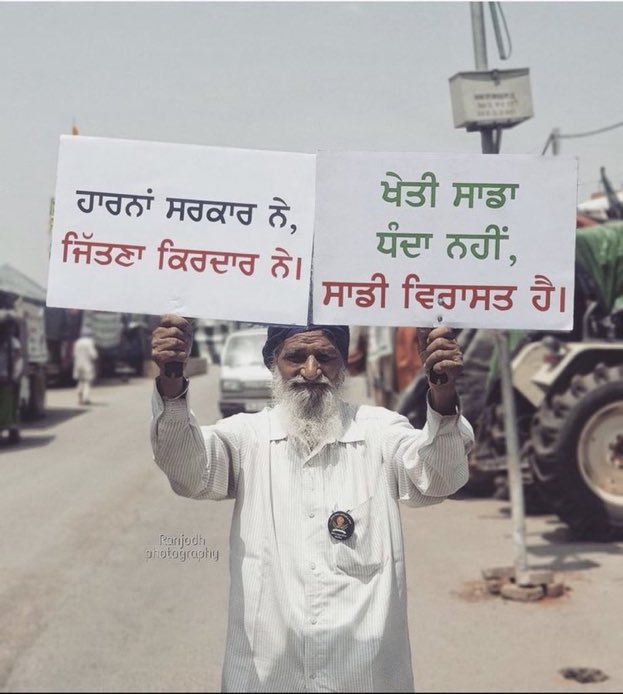 ਹਾਰਨਾਂ ਸਰਕਾਰ ਨੇ,
ਜਿੱਤਣਾ ਕਿਰਦਾਰ ਨੇ।
ਖੇਤੀ ਸਾਡਾ
ਧੰਦਾ ਨਹੀਂ,
ਸਾਡੀ ਵਿਰਾਸਤ ਹੈ।
Ranjodh
photography